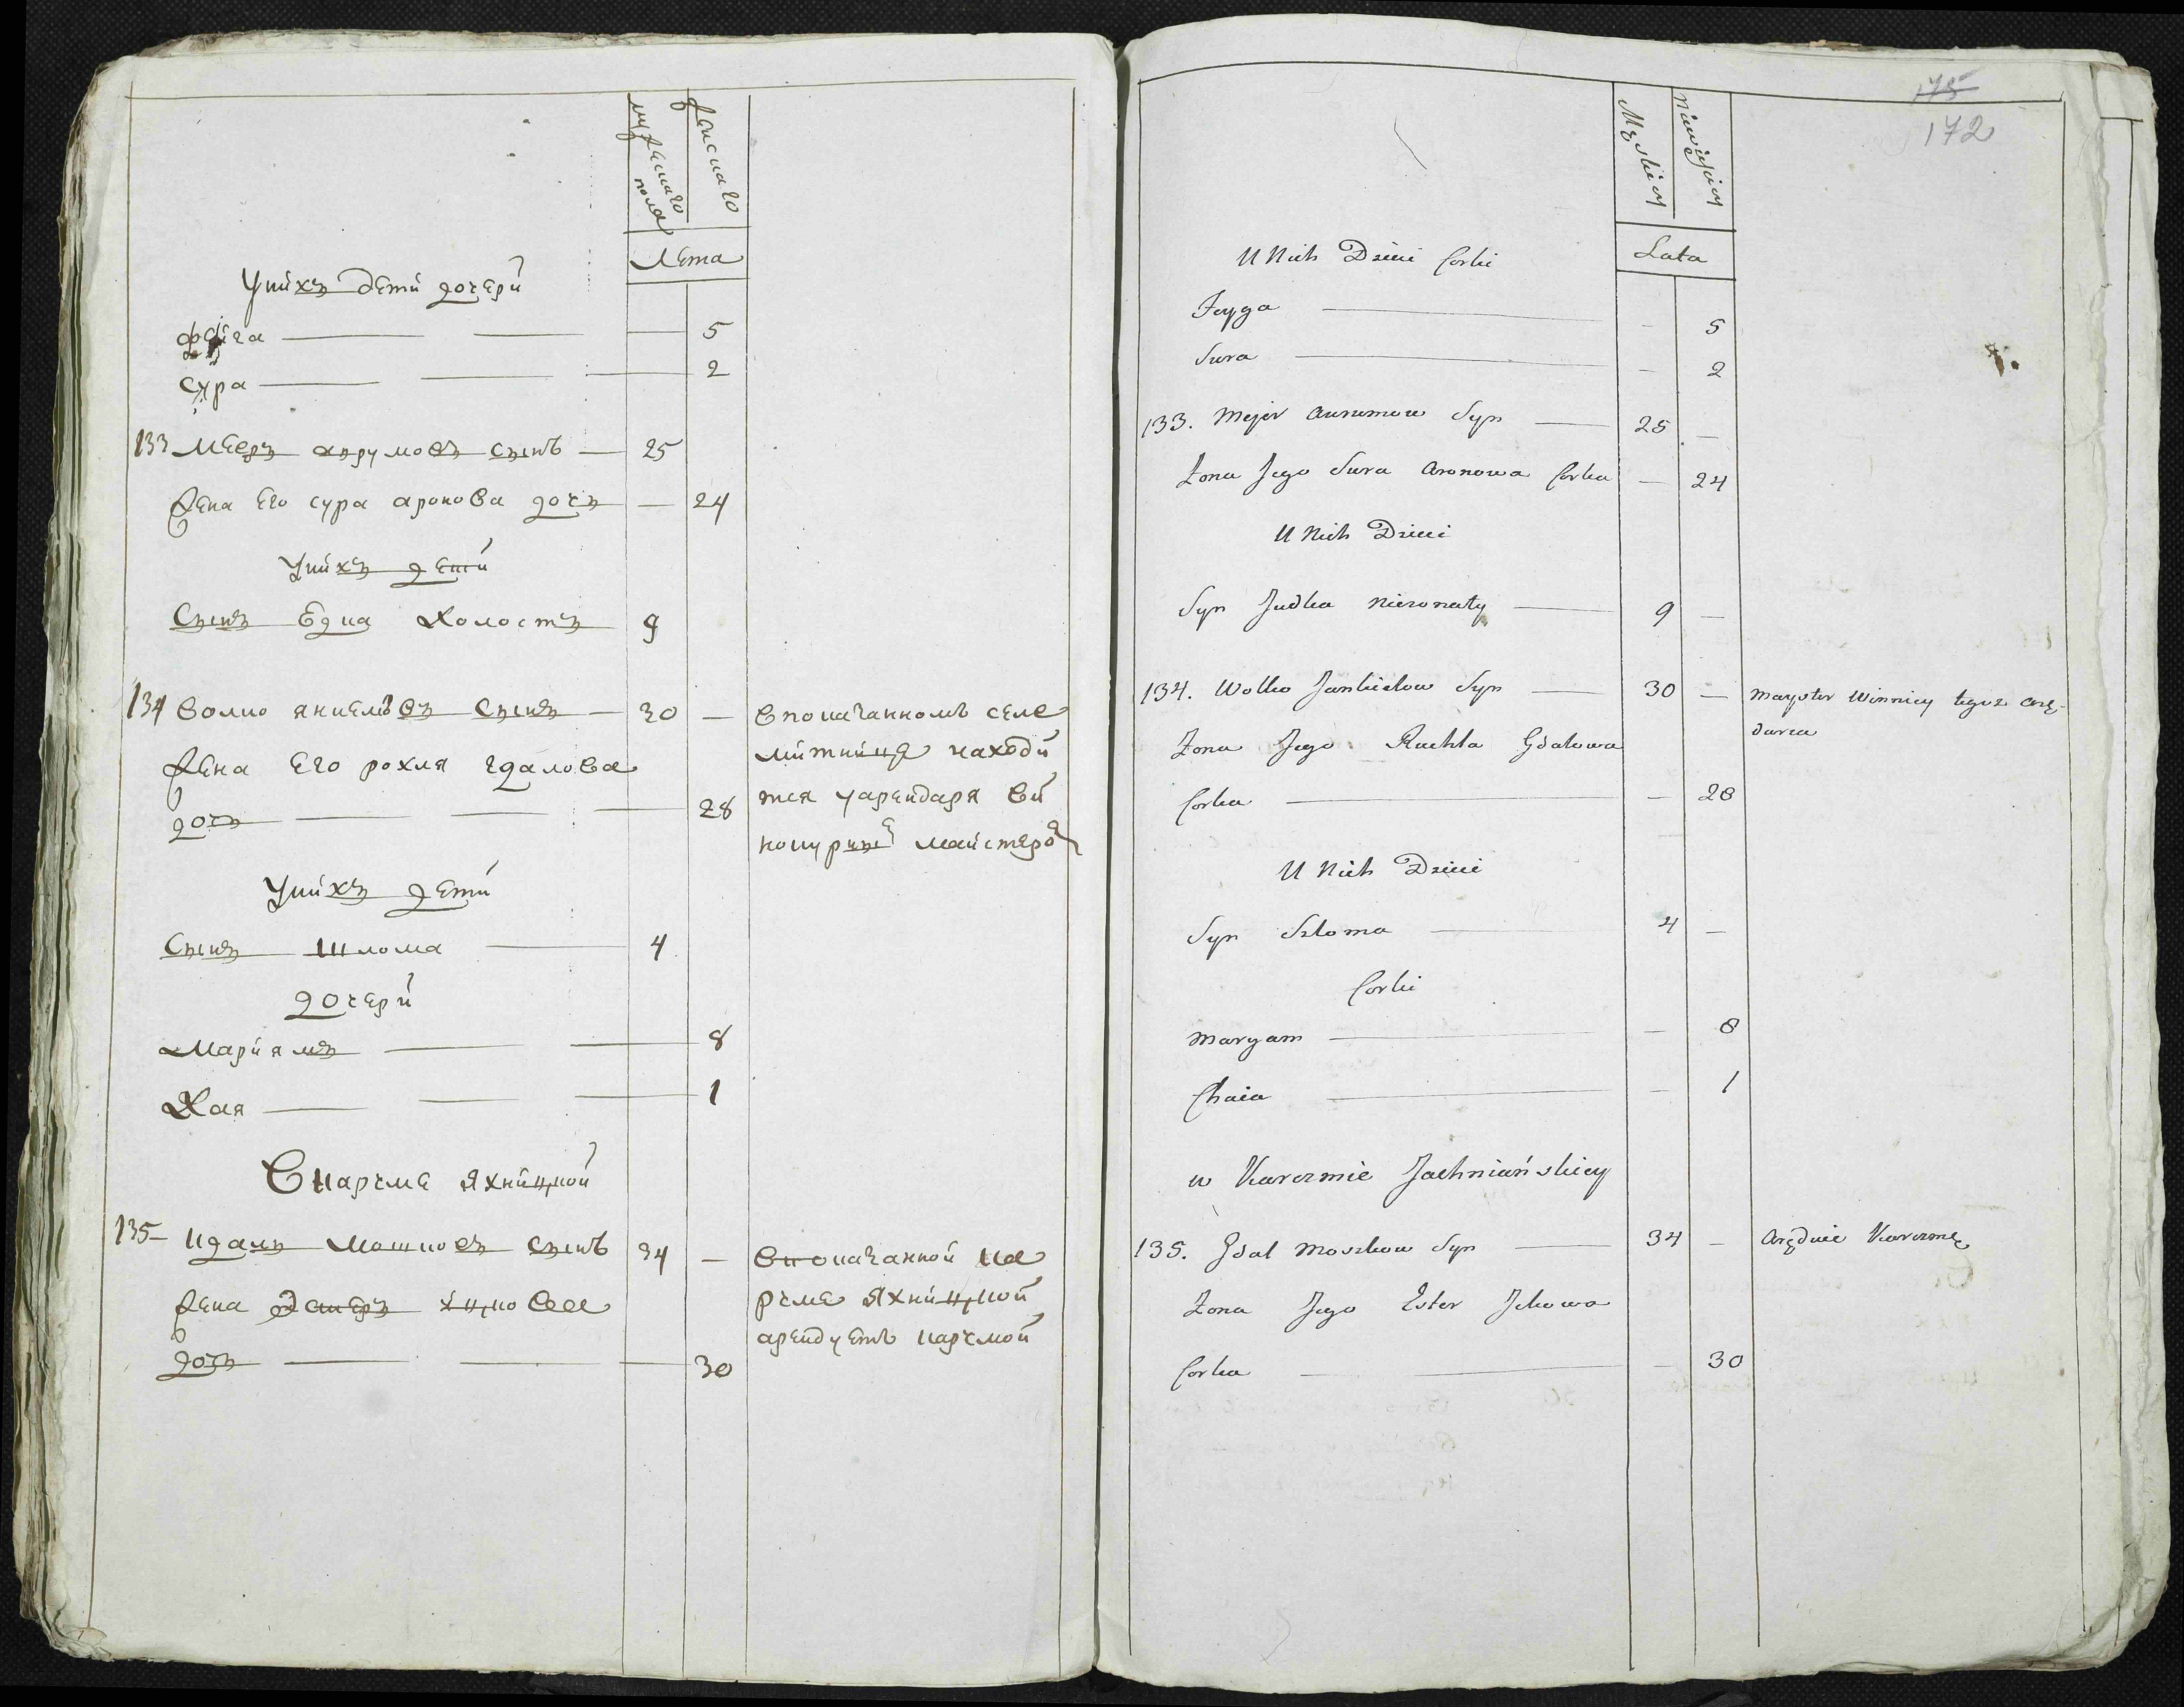 мужескаго
пола
женскаго
лета
у нихъ дети дочери
Фейга — — — 5
Сура — — — 2
133 Мееръ сынъ — 25
жена его Сура Аронова дочь — 24
у нихъ дети
Сынъ Юдка холостъ 9
134 Волко Янкелевъ сынъ — 30 —
жена его Рохля Гдалова
дочь — — — 28
в показанномъ селе
находи
тся у арендаря ви
майстеро
у нихъ дети
Сынъ Шлома — 4
дочери
Мариямъ — — 8
Хая — — — 1
В карчме Яхницкой
135 Идаль Мошковъ сынъ 34 —
жена Эстеръ Ицкова
дочь — — — 30
В показанной ка
рчме Яхницкой
арендуетъ карчмой
175
172
Męskiey
Niewieściey
Lata
U Nich Dzieci Corki
Feyga — — 5
Sura — — 2
133. Mejer Syn — 25 —
Zona Jego Sura Aronowa Corka — 24
U Nich Dzieci
Syn Judka niezonaty — 9 —
134. Wolko Jankielow Syn — 30 —
Zona Jego Ruchla Gdalowa
Corka — — 28
Mayster Winnicy tegoz Arę-
darza
U Nich Dzieci
Syn Szloma — 4 —
Corki
Maryam — — 8
Chaia — — 1
w Karczmie Jachniańskiey
135. Jdal Moszkow Syn — 34 —
Zona Jego Ester Jckowa
Corka — — 30
Aręduie Karczmę